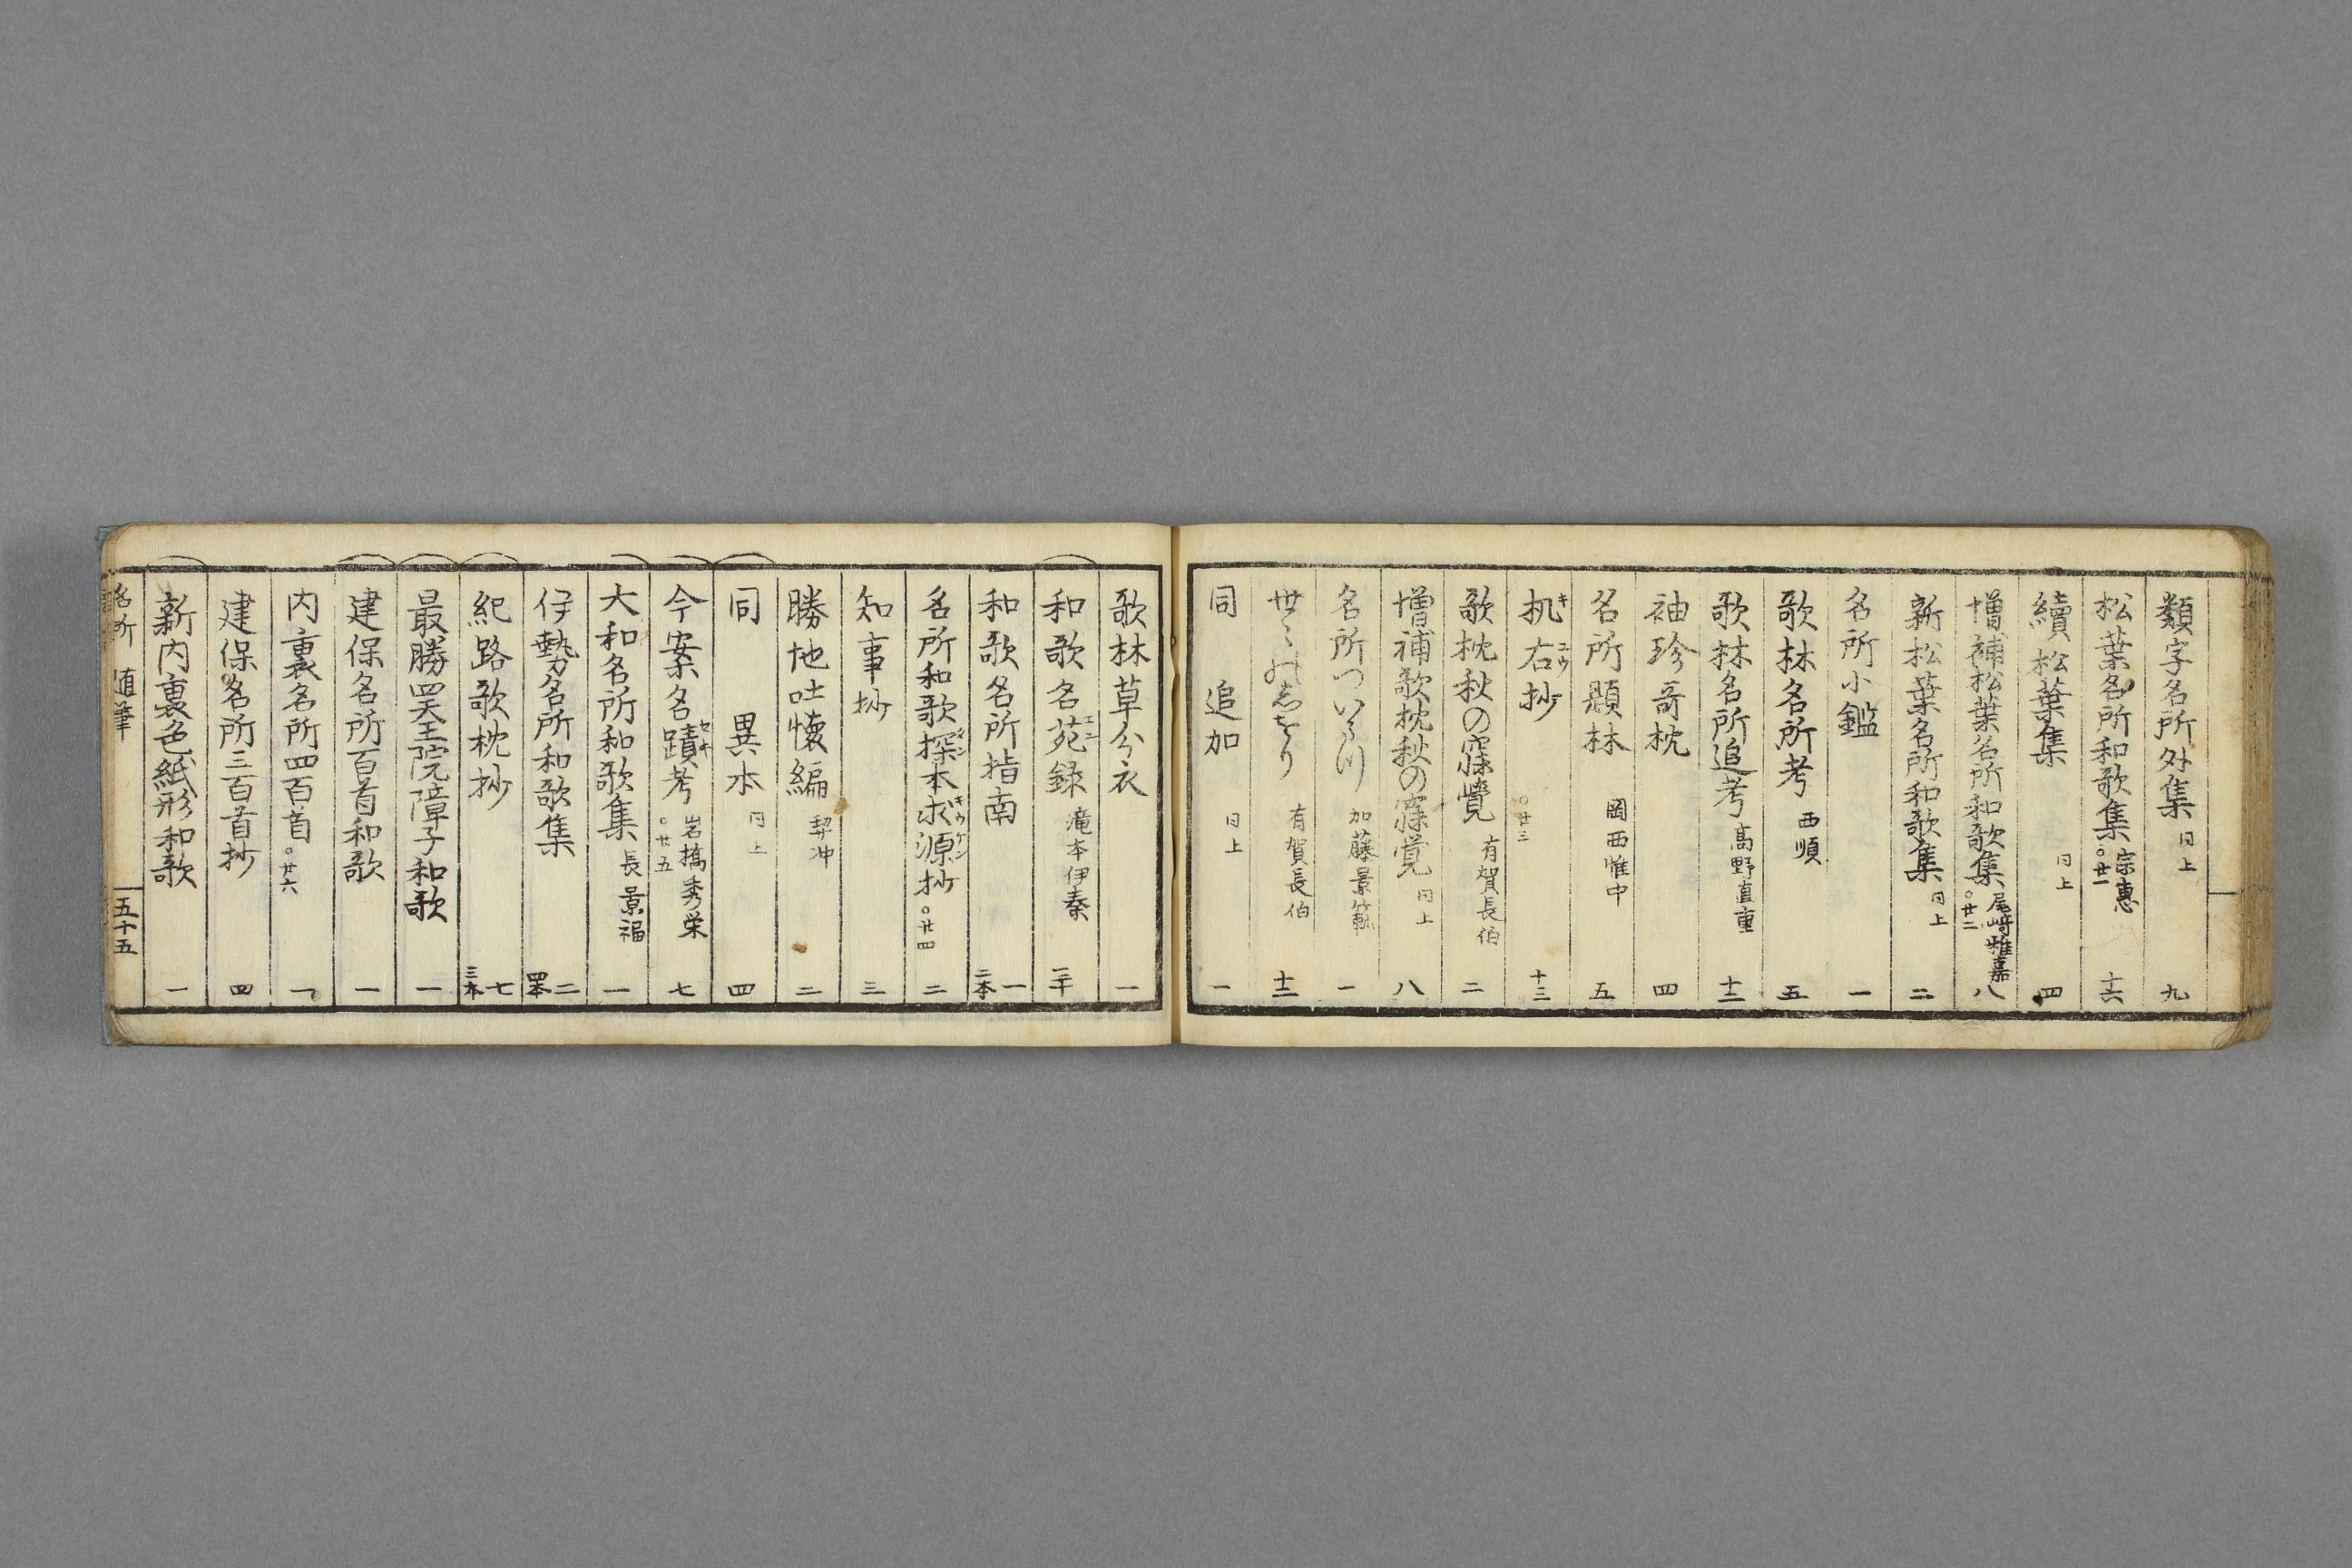 類字名所外集 同上 九
松葉名所和歌集 宗恵 ○廿一 十六
續松葉集 同上 四
増補松葉名所和歌集 尾崎雅嘉 ○廿二 八
新松葉名所和歌集 同上 二
名所小鑑 一
歌林名所考 西順 五
歌林名所追考 高野直重 十二
袖珍哥枕 四
名所題林 岡西惟中 五
机右抄 キユウ ○廿三 十三
歌枕秋の寐覺 有賀長伯 二
増補歌枕秋の寐覚 同上 八
名所つい 加藤景範 一
世々のしをり 有賀長伯 十二
同 追加 同上 一
歌林草分衣 一
和歌名苑録 エン 滝本伊秦 二十
和歌名所指南 一 二本
名所和歌探本求源抄 キウケン ○廿四 二
知事抄 三
勝地吐懐編 契冲 二
同 異本 同上 四
今案名蹟考 セキ 岩橋秀栄 ○廿五 七
大和名所和歌集 長景福 一
伊勢名所和歌集 二 四本
紀路歌枕抄 七 三本
最勝四天王院障子和歌 一
建保名所百首和歌 一
内裏名所四百首 ○廿六 一
建保名所三百首抄 四
新内裏色紙形和歌 一
名所 随筆 五十五